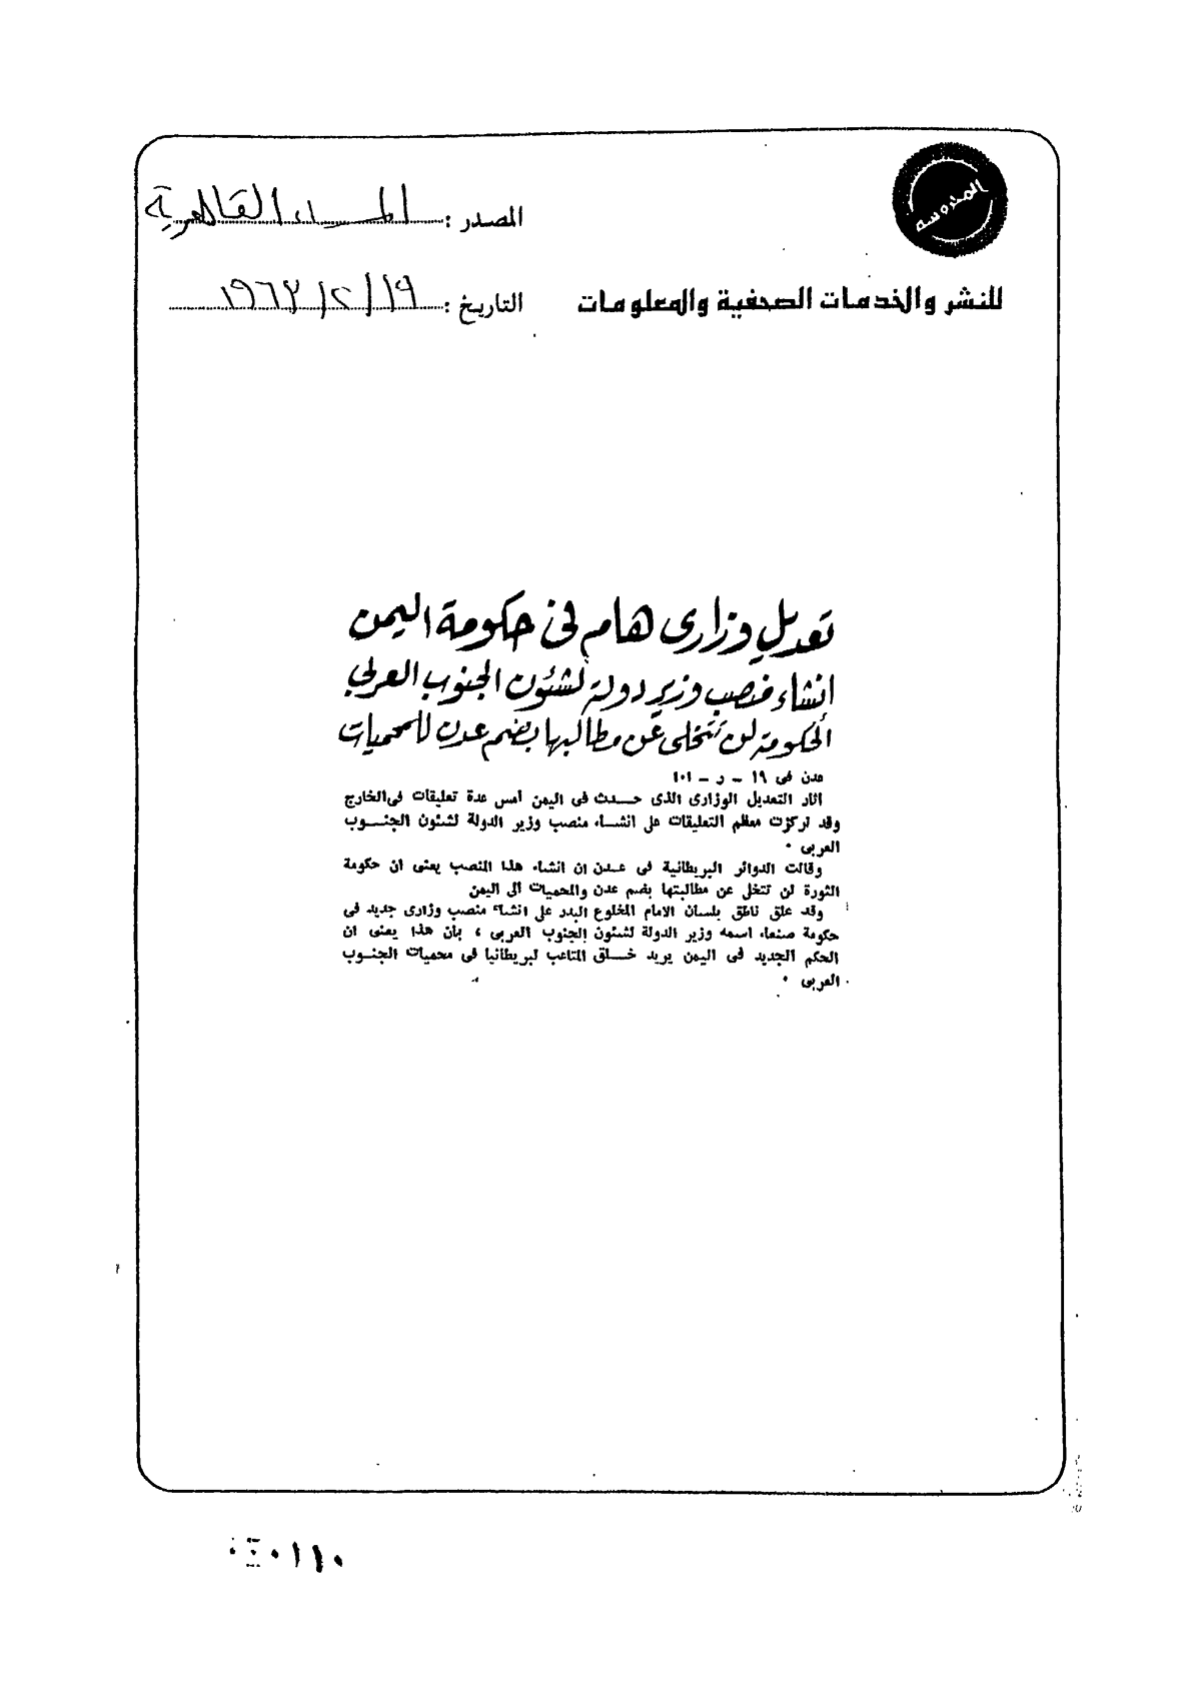 المحروسة
المصدر : المساء القاهرية
للنشر والخدمات الصحفية والمعلومات
التاريخ : ١٩/٢/١٩٦٣
تعديل وزارى هام فى حكومة اليمن
انشاء منصب وزير دولة لشئون الجنوب العربى
الحكومة لن تتخلى عن مطالبها بضم عدن للمحميات
عدن فى ١٩ - ر - ١٠١
اثار التعديل الوزارى الذى حدث فى اليمن أمس عدة تعليقات فى الخارج
وقد تركزت معظم التعليقات على انشاء منصب وزير الدولة لشئون الجنوب
العربى .
وقالت الدوائر البريطانية فى عدن ان انشاء هذا المنصب يعنى ان حكومة
الثورة لن تتخل عن مطالبتها بضم عدن والمحميات الى اليمن
وقد علق ناطق بلسان الامام المخلوع البدر على انشاء منصب وزارى جديد فى
حكومة صنعاء اسمه وزير الدولة لشئون الجنوب العربى ، بأن هذا يعنى ان
الحكم الجديد فى اليمن يريد خلق المتاعب لبريطانيا فى محميات الجنوب
العربى .